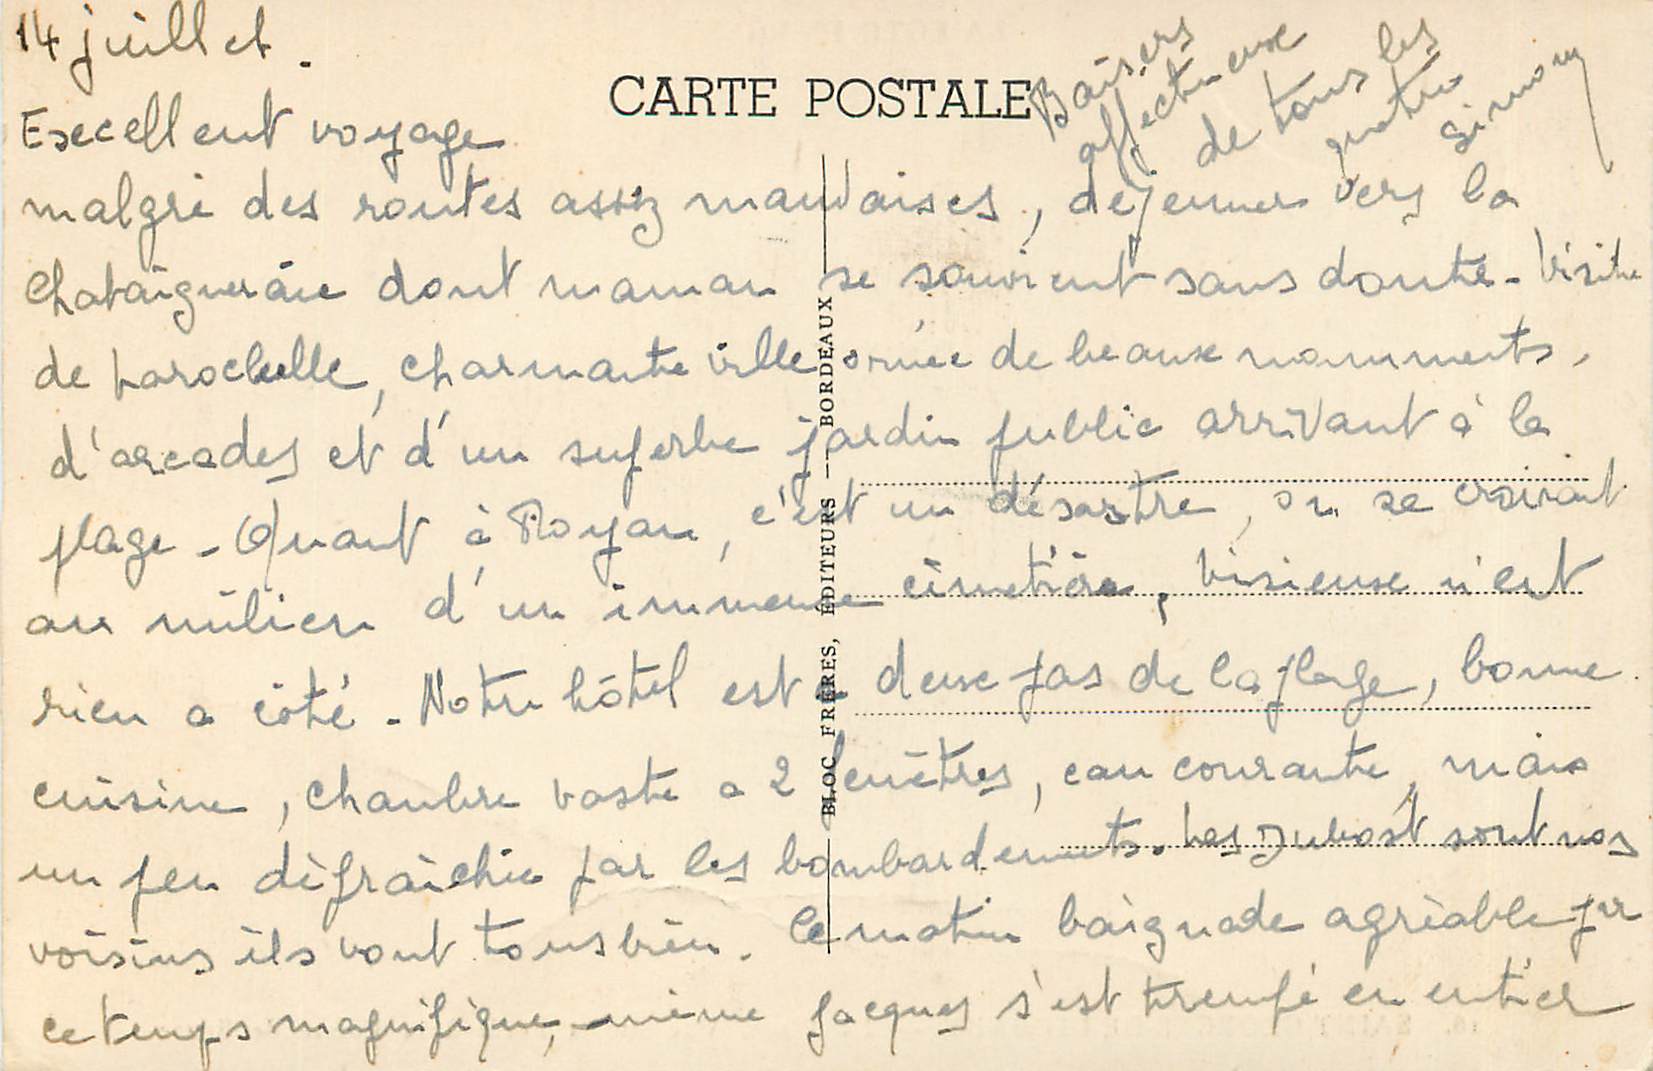 14 juillet.
CARTE POSTALE
Excellent voyage
malgré des routes assez mauvaises, déjeuner vers la
Chataigneraie dont maman se souvient sans doute - Visite
de Larochelle, charmante ville ornée de beaux monuments,
d'arcades et d'un superbe jardin public arrivant à la
plage - Quant à Royan, c'est un désastre, on se croirait
au milieu d'un immense cimetière, Lisieux n'est
rien a côté - Notre hôtel est à deux pas de la plage, bonne
cuisine, chambre vaste a 2 fenêtres, eau courante, mais
un peu défraichie par les bombardements. Les Jubost sont nos
voisins ils vont tous bien. Ce matin baignade agréable par
ce temps magnifique, même Jacques s'est trempé en entier
Baisers
affectueux
de tous les
quatre
Simon
BLOC FRÈRES, ÉDITEURS — BORDEAUX